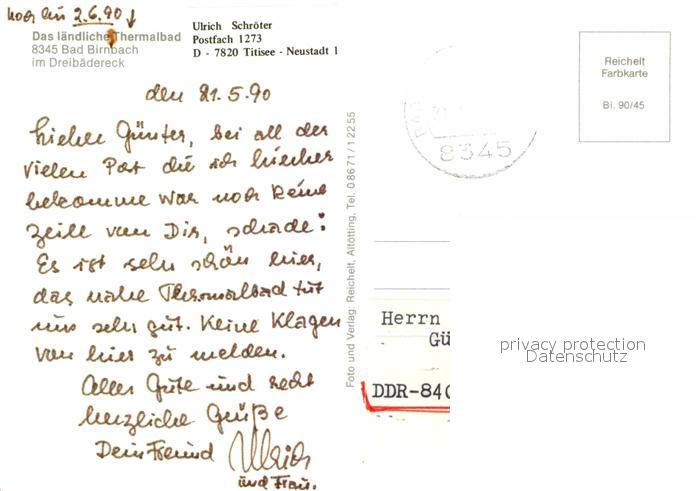 noch bis 2.6.90
Das ländliche Thermalbad
8345 Bad Birnbach
im Dreibädereck
Ulrich Schröter
Postfach 1273
D - 7820 Titisee - Neustadt 1
den 21.5.90
Lieber Günter, bei all der
vielen Post die ich hierher
bekomme war noch keine
Zeile von Dir, schade!
Es ist sehr schön hier,
das nahe Thermalbad tut
uns sehr gut. Keine Klagen
von hier zu melden.
Alles Gute und recht
herzliche Grüße
Dein Freund Ulrich
und Frau.
Foto und Verlag: Reichelt, Altötting, Tel. 0 86 71 / 1 22 55
8345
Reichelt
Farbkarte
Bi. 90/45
Herrn
Gü
DDR-840
privacy protection
Datenschutz